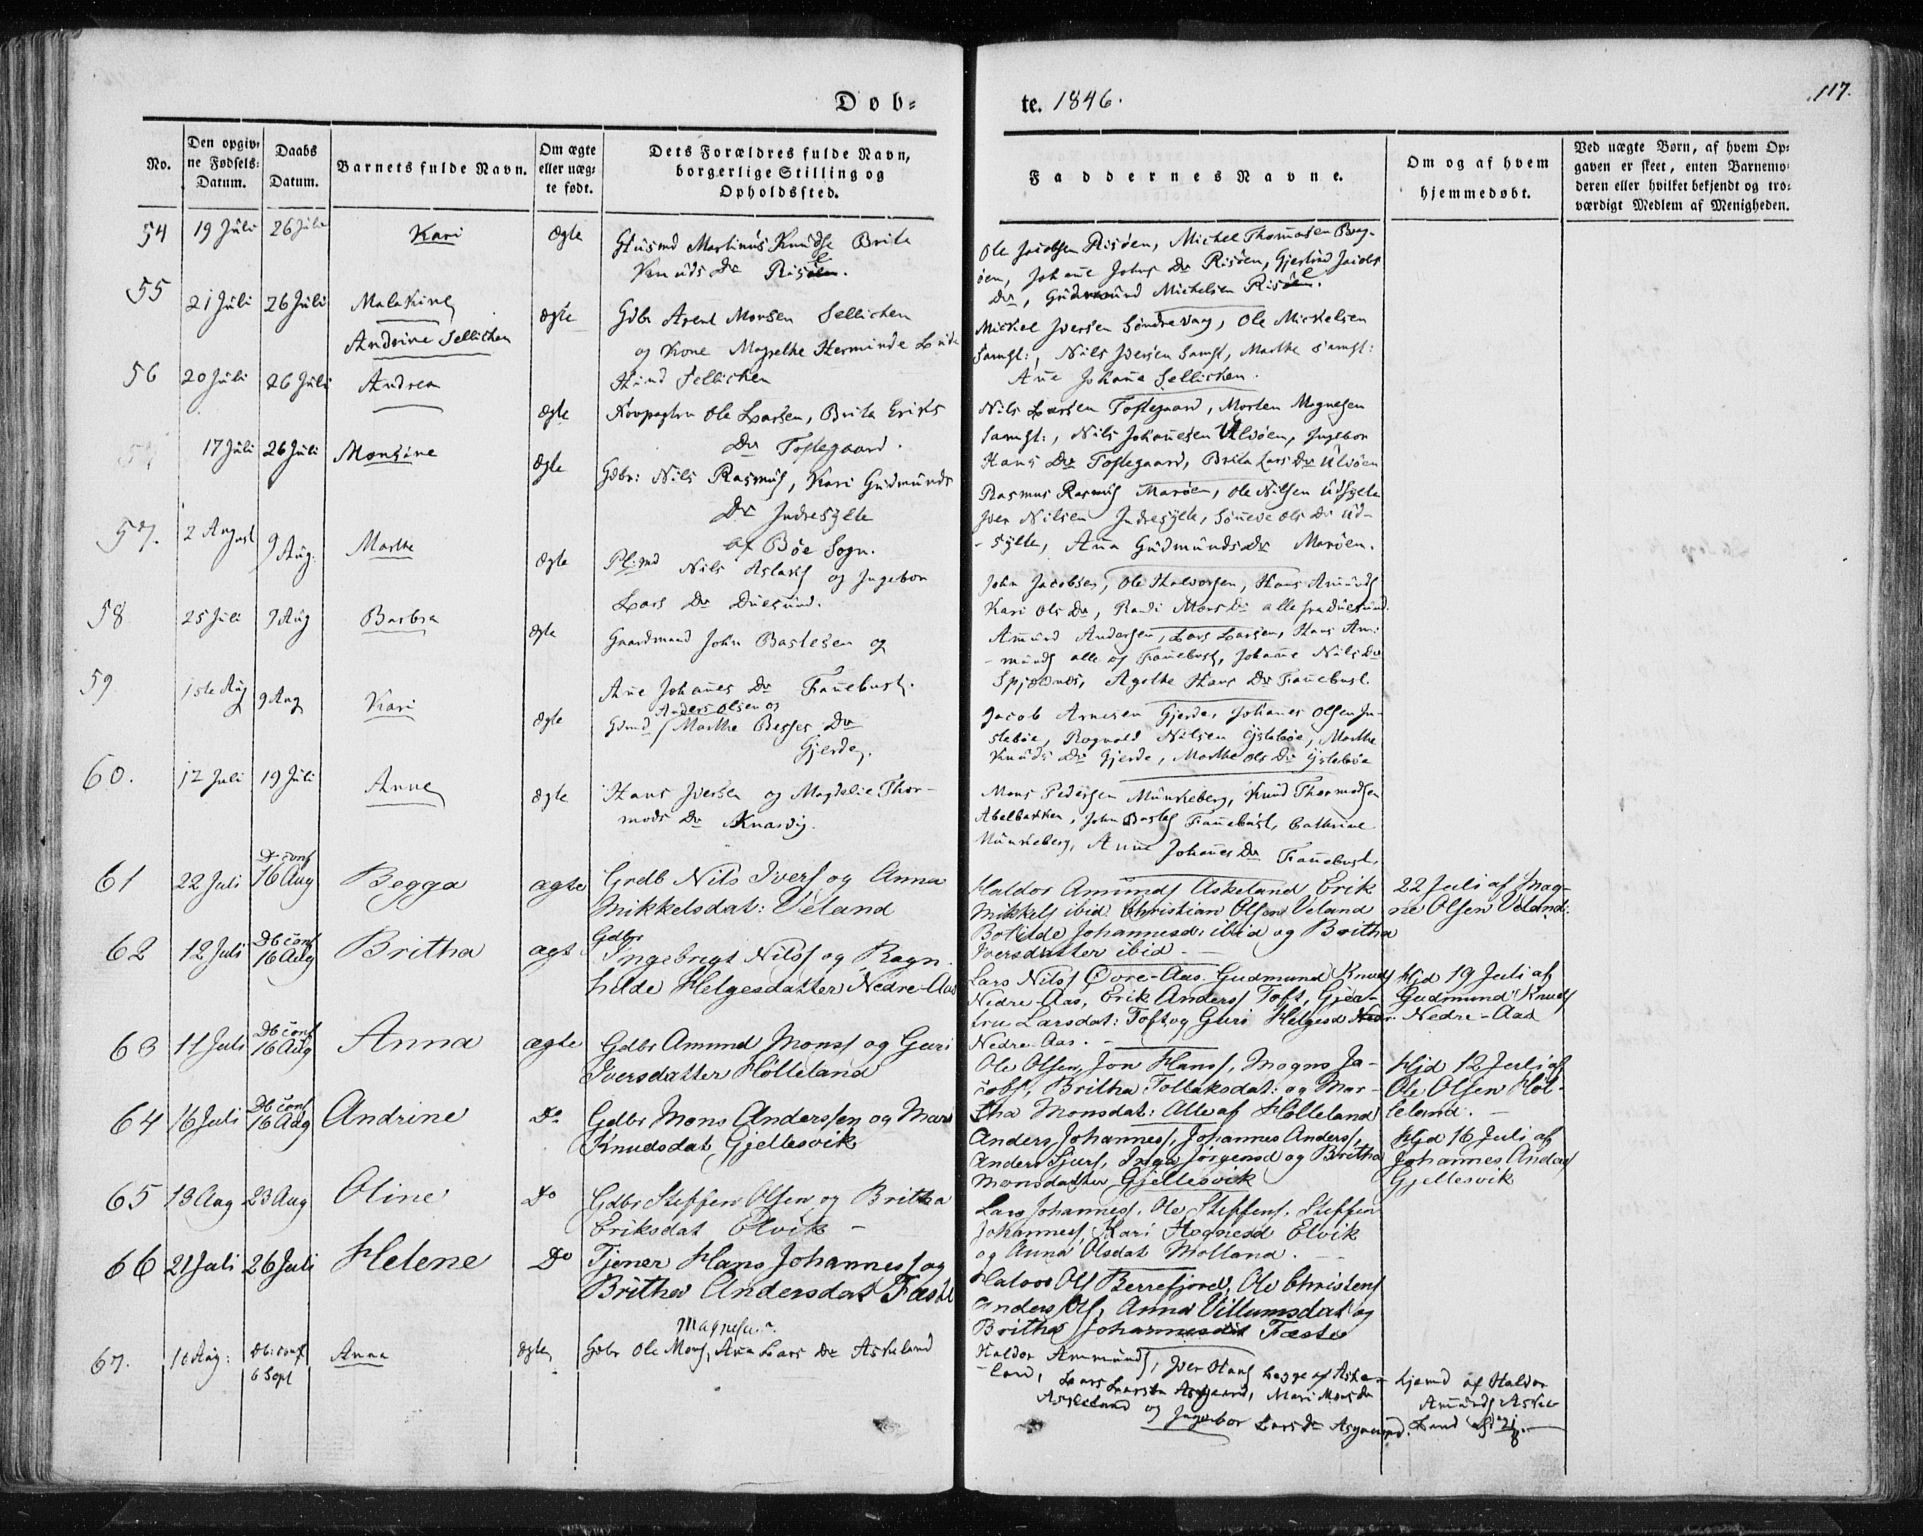 Døb-
te. 1846.
117.
No.
Den opgiv-
ne Fødsels-
Datum.
Daabs
Datum.
Barnets fulde Navn.
Om ægte
eller uæg-
te født.
Dets Forældres fulde Navn,
borgerlige Stilling og
Opholdssted.
Faddernes Navne.
Om og af hvem
hjemmedøbt.
Ved uægte Børn, af hvem Op-
gaven er skeet, enten Barnemo-
deren eller hvilket bekjendt og tro-
værdigt Medlem af Menigheden.
54 19 Juli 26 Juli Kari Ægte
Martinus Knuds Brita
Knuds Dr Risøen.
Ole Jacobsen Risøen, Michel Thomasen
øen, Johanne Johns Dr Risøen, Gjertrud Jacobs
Dr, Gudmund Michelsen Risøen.
55 21 Juli 26 Juli Malakine
Andrine Sellichen
ægte
Gdbr Arent Monsen Sellichen
og Kone Magrethe Herminde
Sellichen
Mickel Iversen Søndrevaag, Ole Mickelsen
Samst:, Nils Iversen Samst, Marthe samst:
Ane Johana Sellichen.
56 20 Juli 26 Juli Andrea
ægte
Ole Larsen, Brita Eriks
Dr Toftegaard.
Nils Larsen Toftegaard, Morten Magnesen
samst:, Nils Johanesen Ulvøen, Ingebor
Hans Dr Toftegaard, Brita Lars Dr Ulvøen
17 Juli 26 Juli Monsine
ægte
Gdbr: Nils Rasmus, Kari Gudmunds
Dr Indresylte
af Bøe Sogn.
Rasmus Rasmus Marøen, Ole Nilsen Udsylte
Iver Nilsen Indresylte, Sønneve Ols Dr Ud-
-sylte, Ana Gudmunds Dr Marøen.
57. 2 August 9 Aug. Marthe
ægte
Pl:md Nils Aslaks og Ingebor
Lars Dr Duesund.
John Jacobsen, Ole Halvorsen, Hans Amunds
Kari Ols Dr, Randi Mons Dr alle fra Duesund.
58 25 Juli 9 Aug Barbra
ægte
Gaardmand John Bastesen og
Ane Johanes Dr Fanebust.
Amund Andersen, Lars Larsen, Hans Am-
-munds alle af Fanebust, Johanne Nils Dr
Spjotnes, Agethe Hans Dr Fanebust.
59 1ste Aug 9 Aug Kari
ægte
Anders Olsen og
Gdmd Marthe Besses Dr
Gjerde.
Jacob Arnesen Gjerde, Johanes Olsen In-
stebøe, Rognald Nilsen Ystebøe, Marthe
Knuds Dr Gjerde, Marthe Ols Dr Ystebøe
60. 12 Juli 19 Juli Anne
ægte
Hans Iversen og Magdelie Thor-
mods Dr Knarvig.
Mons Pedersen Munkeberg, Knud Thormodsen
Abelbakken, John Bastes Fanebust, Cathrine
Munkeberg, Anne Johanes Dr Fanebust.
61 22 Juli Db conf
16 Aug Begga ægte
Grdb Nils Ivers og Anna
Mikkelsdat: Veland
Haldor Amunds Askeland Erik
Mikkels ibid Christian Olsen Veland
Botilde Johannesd: ibid og Britha
Iversdatter ibid. —
22 Juli af Mag-
ne Olsen Veland.
62 12 Juli Db conf
16 Aug Britha ægt
Gdbr
Ingebrigt Nilss og Ragn-
hilde Helgesdatter Nedre-Aas
Lars Nilss Øvre-Aas. Gudmund Knuds
Nedre-Aas, Erik Anderss Toft, Gjer-
tru Larsdat: Toft og Guri Helgesd
Nedre-Aas. —
Hjd 19 Juli af
Gudmund Knuds
Nedre-Aas
63 11 Juli Db conf
16 Aug Anna ægte
Gdbr Amund Monss og Guri
Iversdatter Hølleland
Ole Olsen, Jon Hanss, Mogns Ja-
cobs, Britha Tollaksdat: og Mar-
tha Monsdat: Alle af Hølleland
Hjd 12 Juli af
Ole Olsen Høl-
leland. —
64 16 Juli Db conf
16 Aug Andrine Do
Gdbr Mons Anderssen og Mari
Knudsdat Gjellesvik
Anders Johanness, Johannes Anderss,
Anders Sjurs, Inga Jørgensd og Britha
Monsdatter Gjellesvik
Hjd 16 Juli af
Johannes Anders
Gjellesvik
65 13 Aug 23 Aug Oline Do
Gdbr Steffen Olsen og Britha
Eriksdat Elvik —
Lars Johannes, Ole Steffens, Steffen
Johanness, Kari Hognesd Elvik
og Anna Olsdat Molland. —
66 21 Juli 26 Juli Helene Do
Tjener Hans Johanness og
Britha Andersdat Fæste
Halvor Ols Berrefjord, Ole Christens
Anders Ols, Anna Villumsdat og
Britha Johannesdat Fæste
67. 10 Aug: Db: conf
6 Sept Anna ægte
Gdbr Ole Mons, Ana Lars Dr Askeland
Haldor Ammunds, Iver Hans begge af Aske-
land, Lars Larsen Asgaard, Mari Mons Dr
Askeland og Ingebor Lars Dr Asgaard.
hjemd af Haldor
Amunds Aske-
land d 21/8. —